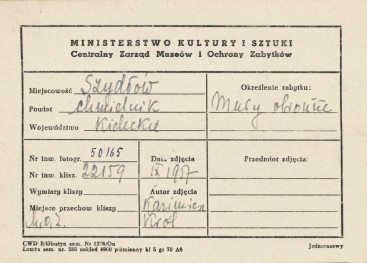 MINISTERSTWO KULTURY I SZTUKI
Centralny Zarząd Muzeów i Ochrony Zabytków
Miejscowość Szydłów
Powiat chmielnik
Województwo Kieleckie
Określenie zabytku:
Mury obronne
Nr inw. fotogr. 50165
Nr inw. klisz. 22159
Wymiary kliszy
Miejsce przechow kliszy
Data zdjęcia
IX 1957
Autor zdjęcia
Kazimierz
Król
Przedmiot zdjęcia:
CWD R/Olsztyn zam. Nr
Jednorazowy